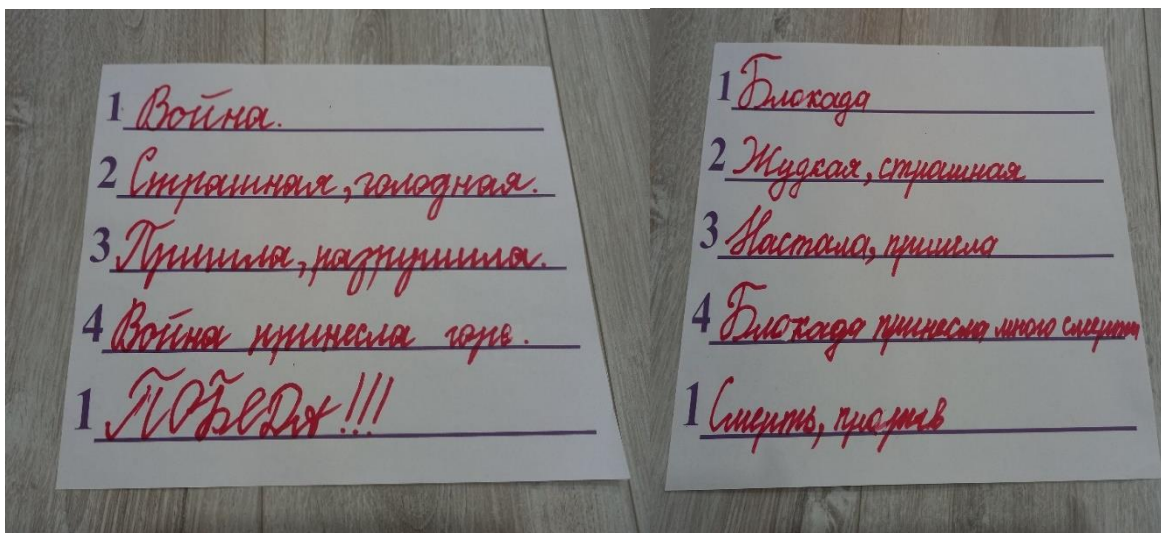 1 Война.
2 Страшная, голодная.
3 Пришла, разрушила.
4 Война принесла горе.
1 ПОБЕДА!!!
1 Блокада
2 Жудкая, страшная
3 Настала, пришла
4 Блокада принесла много
1 Смерть,